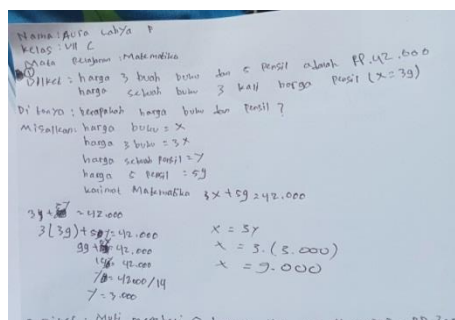 Nama : Aura Cahya P
Kelas : VII C
Mata Pelajaran : Matematika
Diket : harga 3 buah buku dan 5 pensil adalah RP. 42.000
harga sebuah buku 3 kali harga pensil (x = 3y)
Di tanya : berapakah harga buku dan Pensil ?
Misalkan : harga buku = x
harga 3 buku = 3x
harga sebuah Pensil = y
harga 5 Pensil = 5y
Matematika 3x + 5y = 42.000
= 42.000
3(3y) + 5y = 42.000
x = 3y
9y + = 42.000
x = 3. (3.000)
42.000
x = 9.000
= 42000/14
y = 3.000